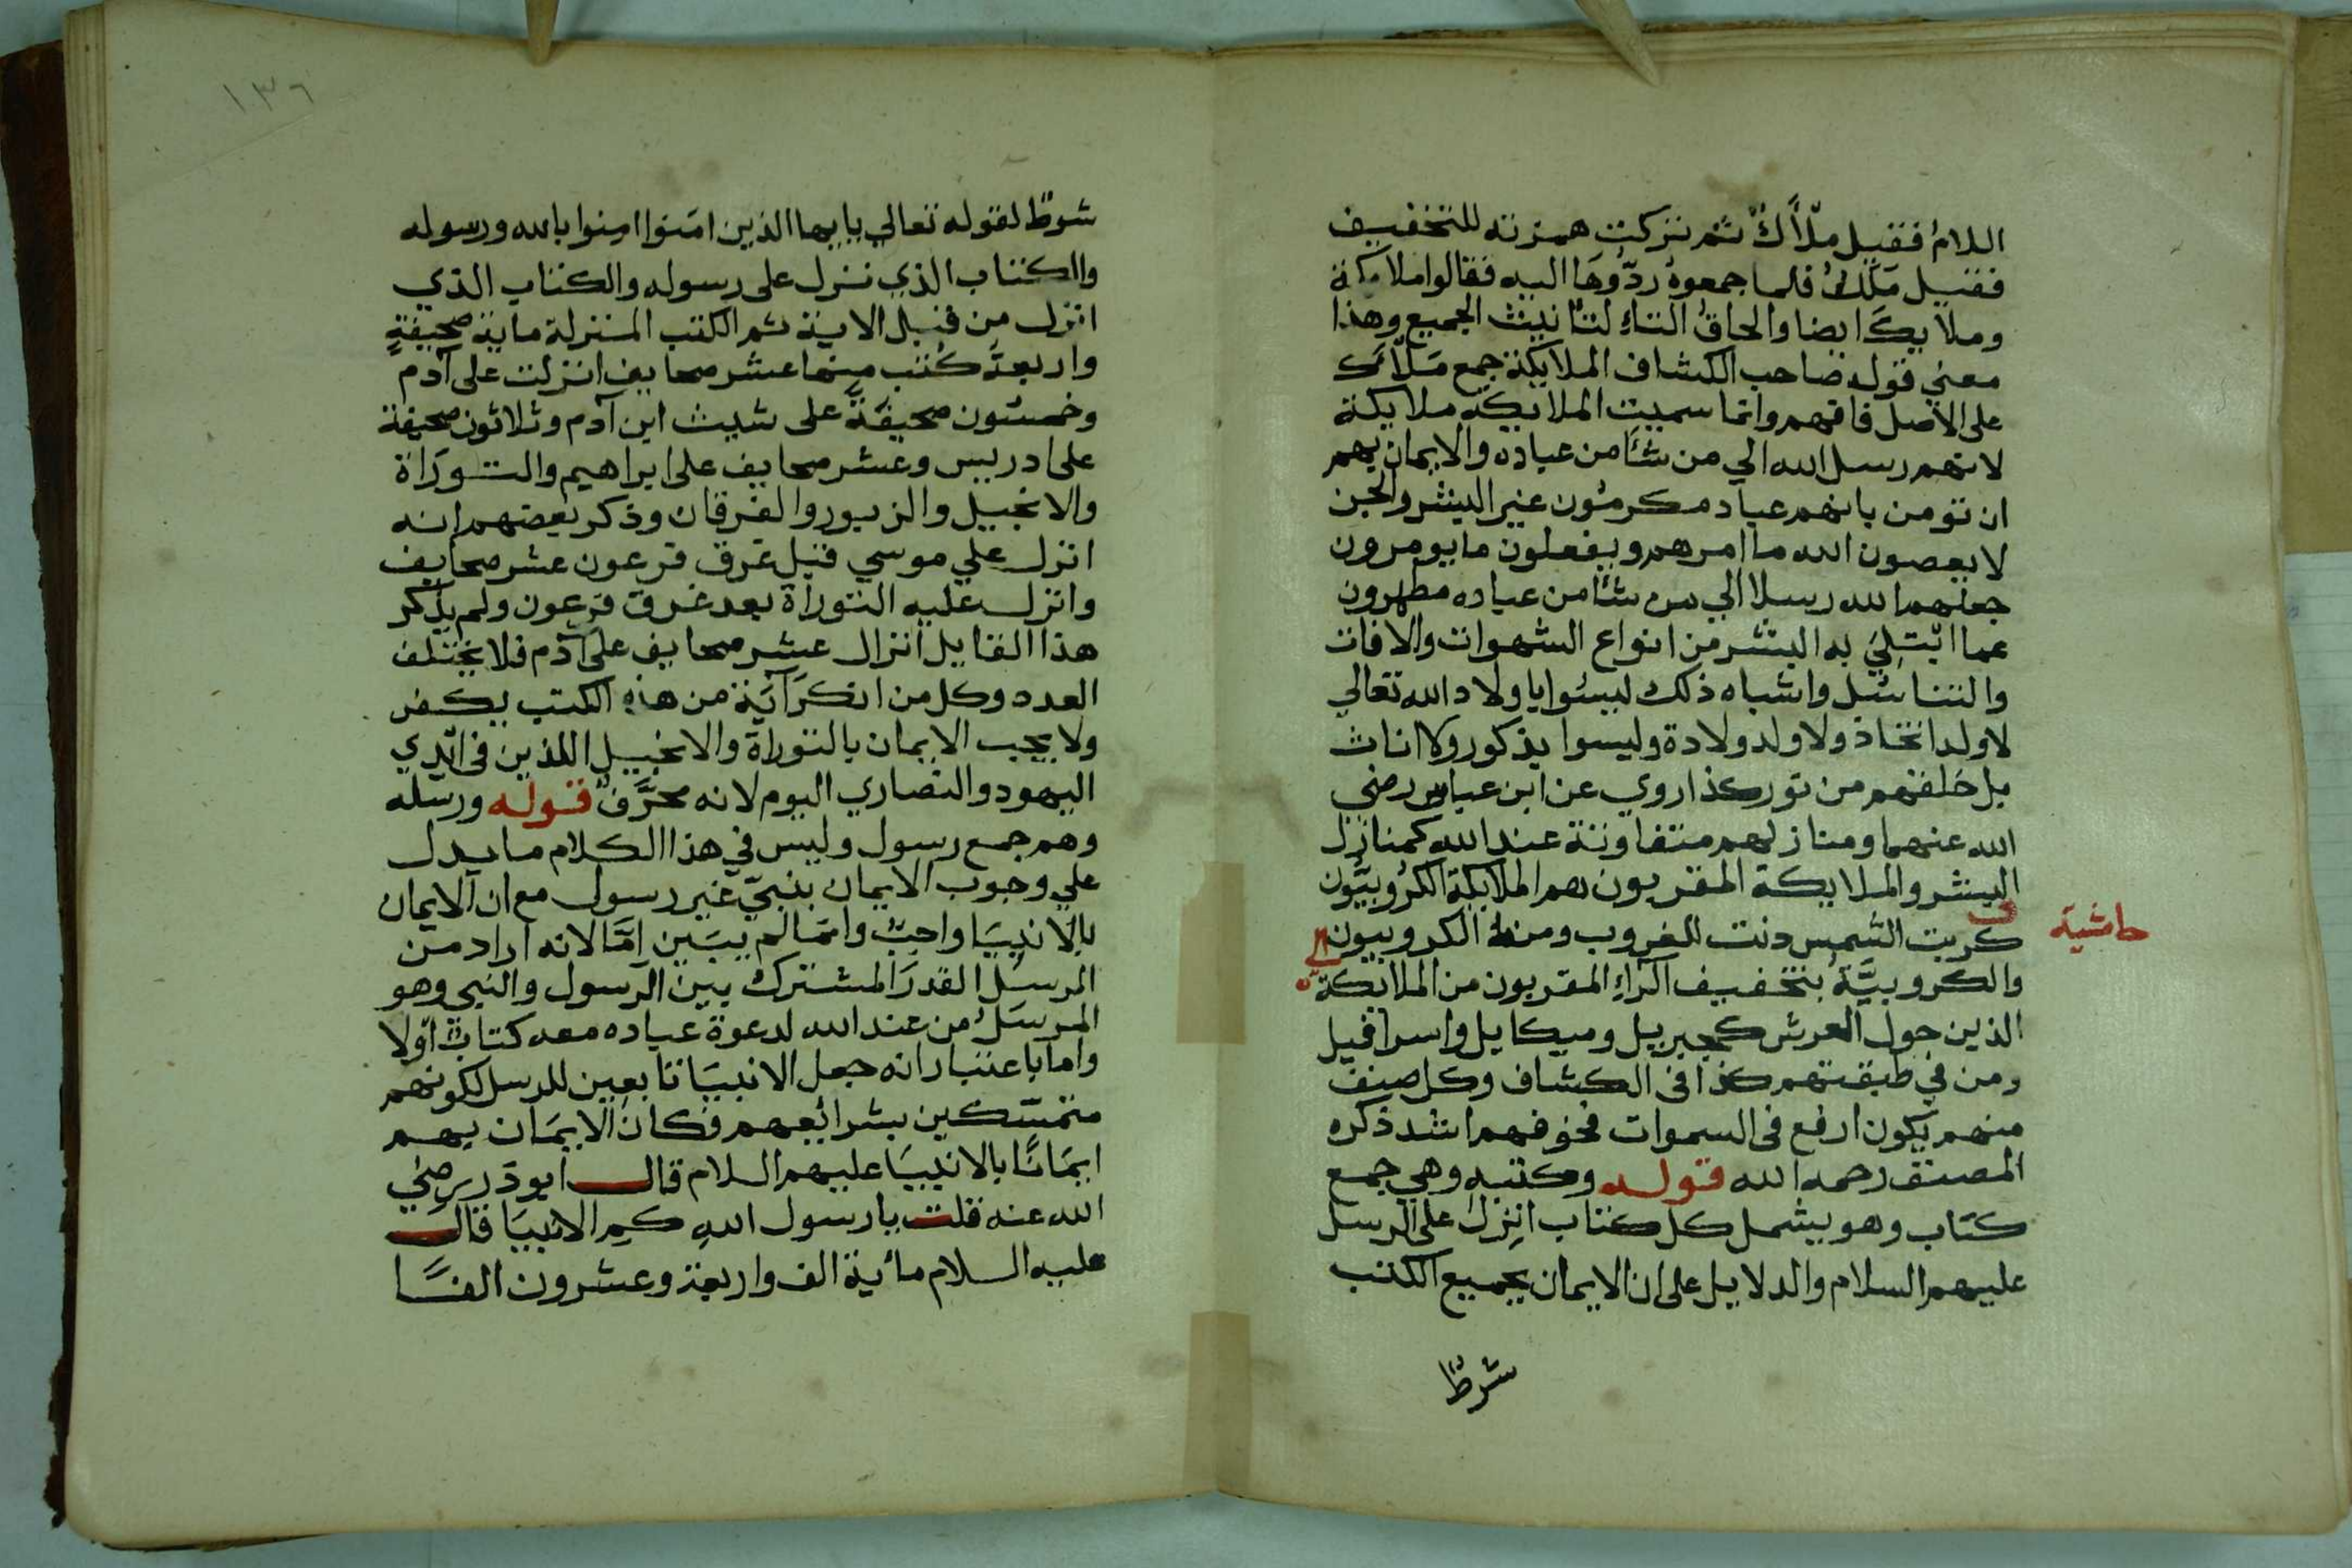 اللام فقيل ملأك ثم تركت همزته للتخفيف
فقيل مَلَك فلما جمعوه ردّوها اليه فقالوا ملائكة
وملايك ايضا والحاق التاء لتانيث الجمع وهذا
معني قوله صاحب الكشاف الملايكة جمع ملأك
على الاصل فافهم وانما سميت الملايكة ملايكة
لانهم رسل الله الي من شاء من عباده والايمان بهم
ان تومن بانهم عباد مكرمون غير البشر والجن
لا يعصون الله ما امرهم ويفعلون ما يومرون
جعلهم الله رسلا الي من شاء من عباده مطهرون
عما ابتلي به البشر من انواع الشهوات والافات
والتناسل واشباه ذلك ليسوا باولاد الله تعالي
لا ولد اتخاذ ولا ولد ولادة وليسوا بذكور ولا اناث
بل خلقهم من نور كذا روي عن ابن عباس رضي
الله عنهما ومنازلهم متفاوتة عند الله كمنازل
البشر والملايكة المقربون هم الملايكة الكروبيّون
حاشية
كربت الشمس دنت للغروب ومنه الكروبيون
والكروبيّة بتخفيف الراء المقربون من الملائكة
الذين حول العرش كجبريل وميكايل واسرافيل
ومن في طبقتهم كذا في الكشاف وكل صنف
منهم يكون ارفع في السموات فخوفهم اشد ذكره
المصنف رحمه الله قوله وكتبه وهي جمع
كتاب وهو يشمل كل كتاب انزل على الرسل
عليهم السلام والدلايل على ان الايمان بجميع الكتب
شرط
١٣٦
شرط لقوله تعالي يايها الذين امنوا امنوا بالله ورسوله
والكتاب الذي نزل على رسوله والكتاب الذي
انزل من قبل الاية ثم الكتب المنزلة ماية صحيفةٍ
واربعة كتب منها عشر صحايف انزلت على آدم
وخمسون صحيفة على شيث ابن آدم وثلاثون صحيفة
على ادريس وعشر صحايف على ابراهيم والتوراة
والانجيل والزبور والفرقان وذكر بعضهم انه
انزل علي موسي قبل غرق فرعون عشر صحايف
وانزل عليه التوراة بعد غرق فرعون ولم يذكر
هذا القايل انزال عشر صحايف على آدم فلا يختلف
العدد وكل من انكر آية من هذه الكتب يكفر
ولا يجب الايمان بالتوراة والانجيل اللذين في ايدي
اليهود والنصاري اليوم لانه محرّف قوله ورسله
وهم جمع رسول وليس في هذا الكلام ما يدل
علي وجوب الايمان بنبيّ غير رسول مع ان الايمان
بالانبيا واجب وانما لم يبين امّا لانه اراد من
المرسل القدر المشترك بين الرسول والنبي وهو
المرسل من عند الله لدعوة عباده معه كتاب اولا
واما باعتبار انه جعل الانبيا تابعين للرسل لكونهم
متمسّكين بشرائعهم فكان الايمان بهم
ايمانا بالانبيا عليهم السلام قال ابو ذر رضي
الله عنه قلت يا رسول الله كم الانبيا قال
عليه السلام مأئية الف واربعة وعشرون الفا